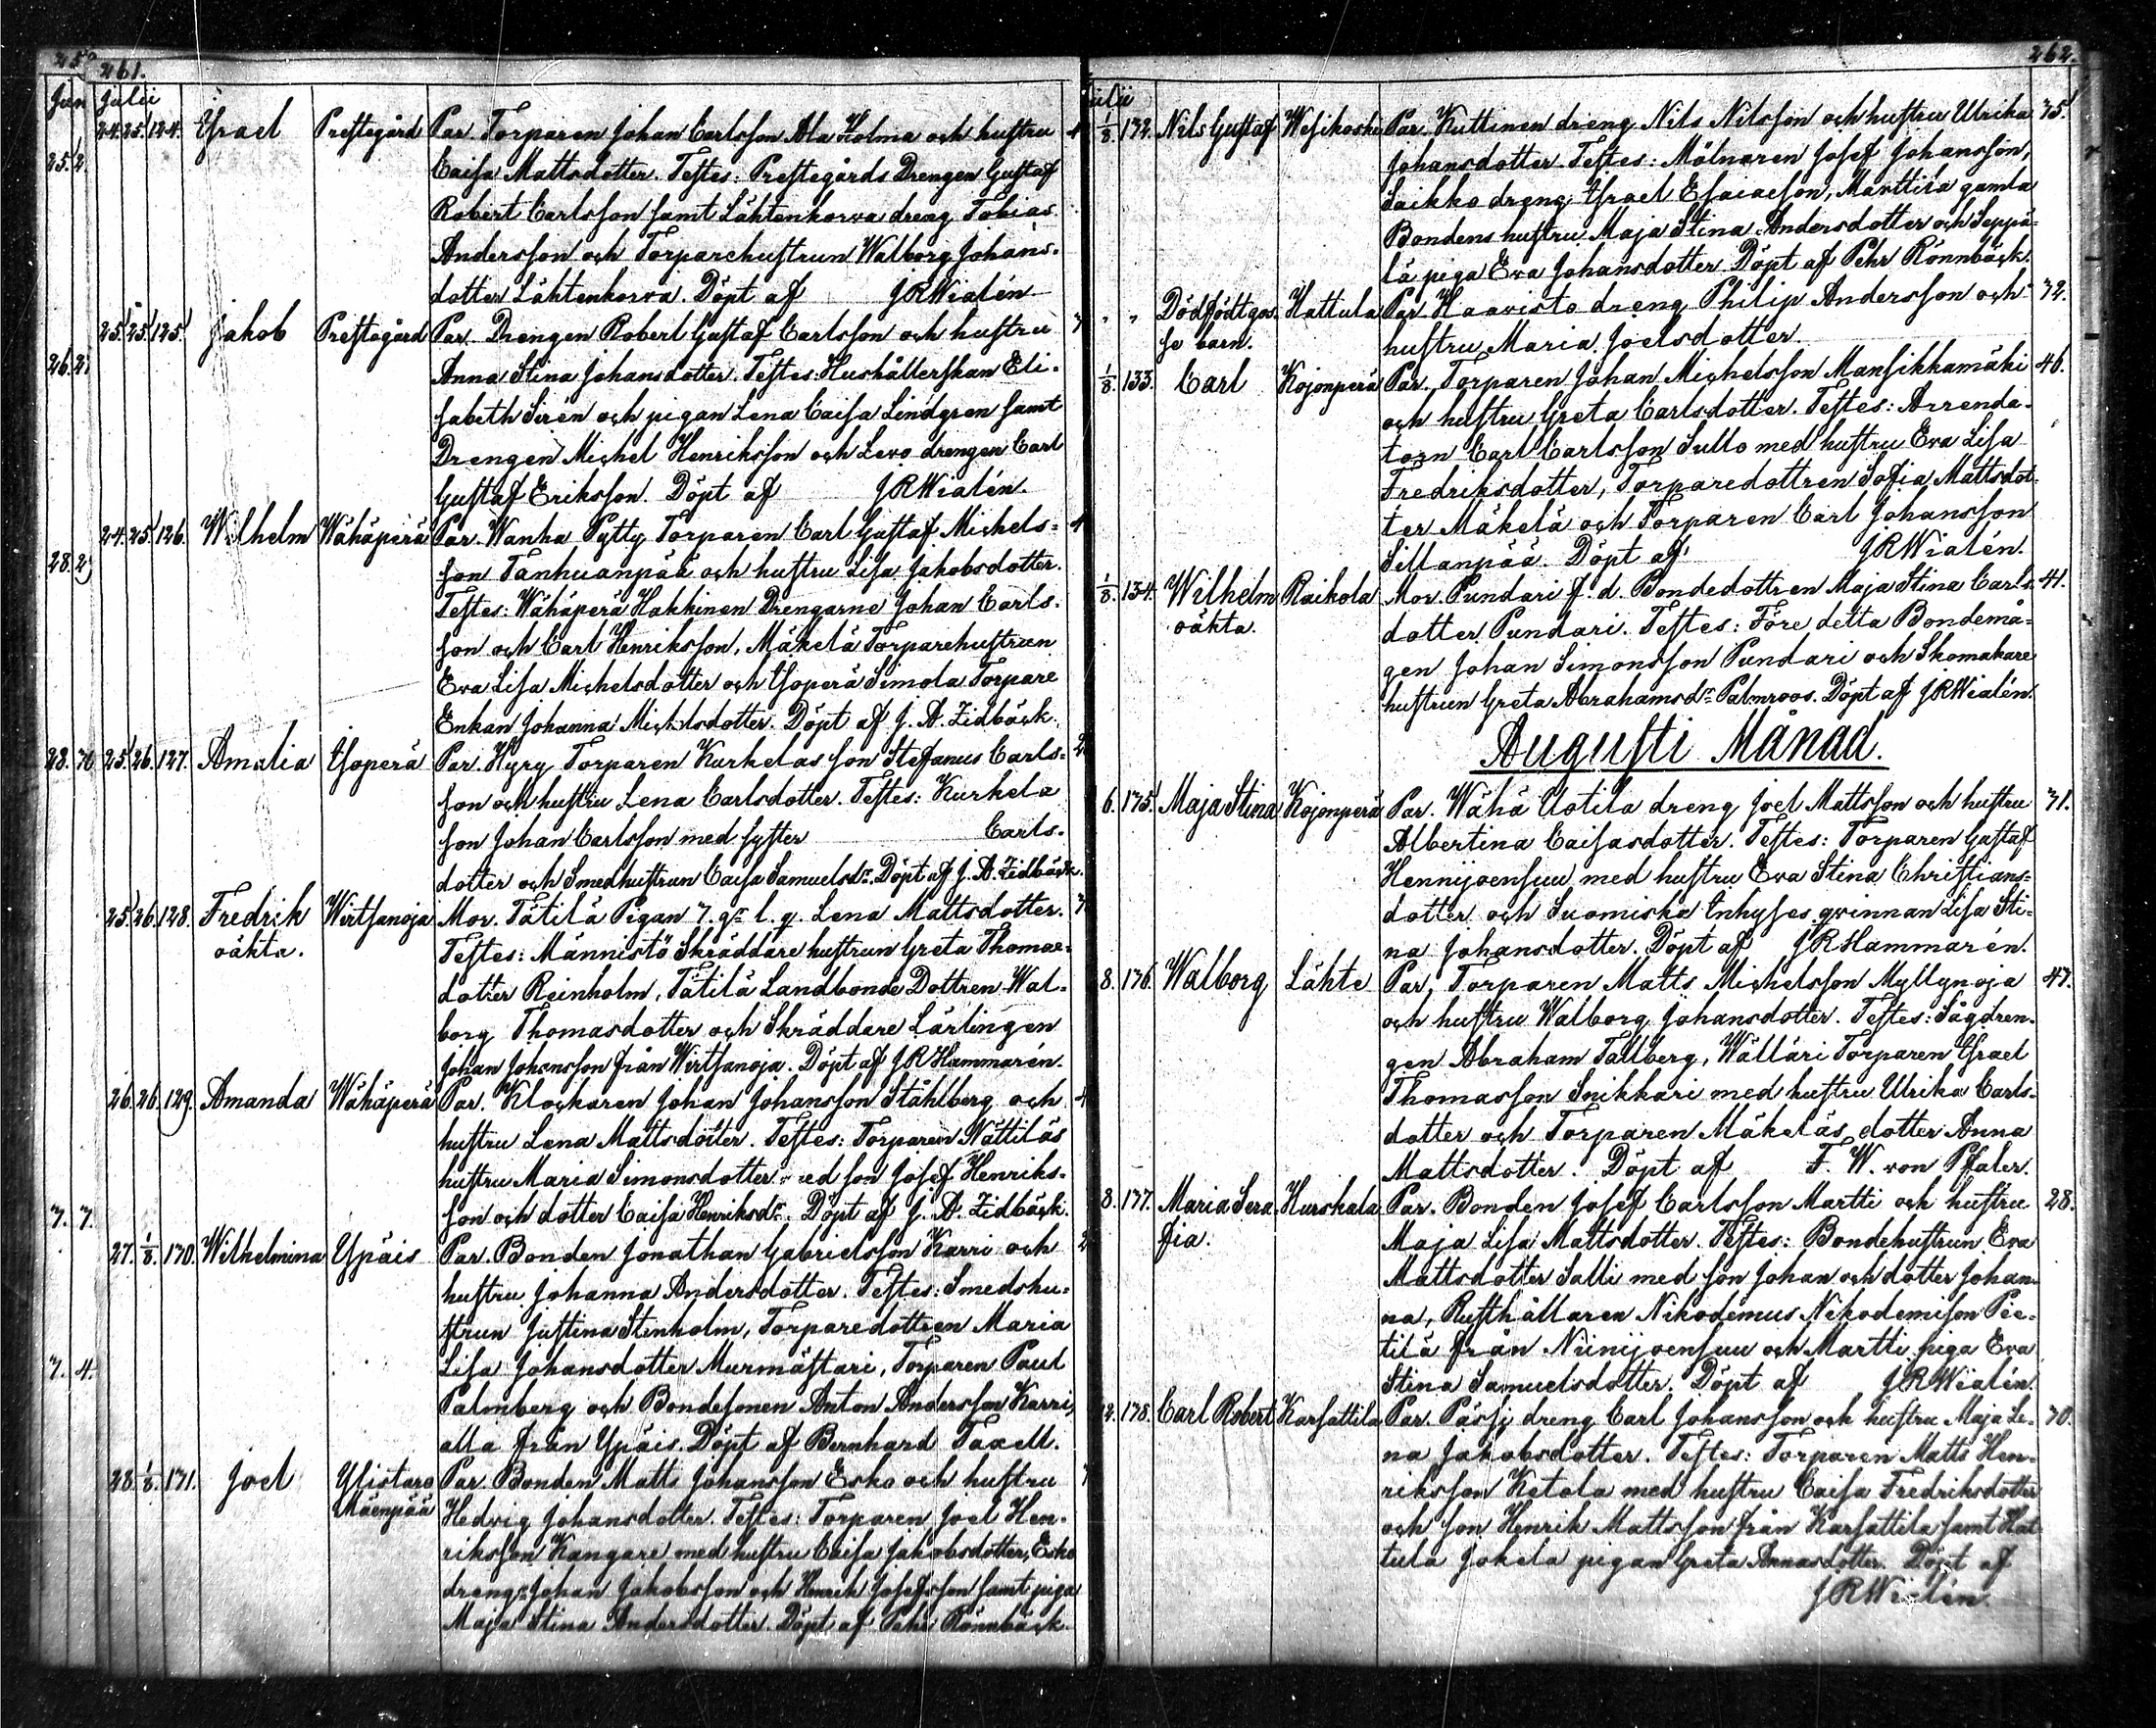 261.
Julii
24. 25. 124. Israel Prestegård Par. Torparen Johan Carlsson Ala Kolma och hustru
Caisa Mattsdotter. Testes: Prestegårds Drengen Gustaf
Robert Carlsson samt Lähtenkorva dreng Tobias
Andersson och Torparehustrun Walborg Johans-
dotter Lähtenkorva. Döpt af JRWialén.
25. 25. 125. Jakob Prestegård Par. Drengen Robert Gustaf Carlsson och hustru
Anna Stina Johansdotter. Testes: Hushållerskan Eli-
sabeth Sirén och pigan Lena Caisa Lindgren samt
Drengen Michel Henriksson och Levo drengen Carl
Gustaf Eriksson. Döpt af JRWialén.
24. 25. 126. Wilhelm Wähäperä Par. Wanha Pytty Torparen Carl Gustaf Michels-
son Tanhuanpää och hustru Lisa Jakobsdotter.
Testes: Wähäperä Hakkinen Drengarne Johan Carls-
son och Carl Henriksson, Mäkelä Torparehustrun
Eva Lisa Michelsdotter och Isoperä Simola Torpare
Enkan Johanna Michelsdotter. Döpt af J. A. Lidbäck.
25. 26. 127. Amalia Isoperä Par. Hyry Torparen Kurkelas son Stefanus Carls-
son och hustru Lena Carlsdotter. Testes: Kurkela
son Johan Carlsson med syster Carls-
dotter och Smedhustrun Caisa Samuelsdr. Döpt af J. A. Lidbäck.
25. 26. 128. Fredrik Wirtsanoja Mor. Tätilä Pigan 7. gr l. q. Lena Mattsdotter.
oäkta. Testes: Männistö Skräddare hustrun Greta Thomae-
dotter Reinholm, Tätilä Landbonde Dottren Wal-
borg Thomasdotter och Skräddare Lärlingen
Johan Johansson från Wirtsanoja. Döpt af JRHammarén.
26. 26. 129. Amanda Wähäperä Par. Klockaren Johan Johansson Ståhlberg och
hustru Lena Mattsdotter. Testes: Torparen Nättiläs
hustru Maria Simonsdotter med son Josef Henriks-
son och dotter Caisa Henriksdr. Döpt af J. A. Lidbäck.
27. 1/8. 130. Wilhelmina Ypäis Par. Bonden Jonathan Gabrielsson Karri och
hustru Johanna Andersdotter. Testes: Smedshu-
strun Justina Stenholm, Torparedottren Maria
Lisa Johansdotter Murmästari, Torparen Paul
Palmberg och Bondesonen Anton Andersson Karri,
alla från Ypäis. Döpt af Bernhard Taxell.
28. 1/8. 131. Joel Ylistaro Par. Bonden Matts Johansson Esko och hustru
Mäenpää Hedvig Johansdotter. Testes: Torparen Joel Hen-
riksson Kangare med hustru Caisa Jakobsdotter, Esko
drengr Johan Jakobsson och Henrik Josefsson samt piga
Maja Stina Andersdotter. Döpt af Pehr Rönnbäck.
262.
Julii
1/8. 132. Nils Gustaf Wesikoski Par. Kuttinen dreng Nils Nilsson och hustru Ulrika 35.
Johansdotter. Testes: Mölnaren Josef Johansson,
Saikko dreng Israel Esaiaesson, Marttila gamla
Bondens hustru Maja Stina Andersdotter och Seppä-
lä piga Eva Johansdotter. Döpt af Pehr Rönnbäck.
" " Dödfödt gos- Hattula Par. Haavisto dreng Philip Andersson och 32.
se barn. hustru Maria Joelsdotter.
1/8. 133. Carl Kojonperä Par. Torparen Johan Michelsson Mansikkamäki 46.
och hustru Greta Carlsdotter. Testes: Arrenda-
torn Carl Carlsson Sullo med hustru Eva Lisa
Fredriksdotter, Torparedottren Sofia Mattsdot-
ter Mäkelä och Torparen Carl Johansson
Sillanpää. Döpt af JRWialén.
1/8. 134. Wilhelm Raikola Mor. Pundari f. d. Bondedottren Maja Stina Carls- 41.
oäkta. dotter Pundari. Testes: Före detta Bondemå-
gen Johan Simonsson Pundari och Skomakare
hustrun Greta Abrahamsdr Palmroos. Döpt af JRWialén.
Augusti Månad.
6. 135. Maja Stina Kojonperä Par. Wähä Uotila dreng Joel Mattsson och hustru 31.
Albertina Caisasdotter. Testes: Torparen Gustaf
Hennijoensuu med hustru Eva Stina Christians-
dotter och Suomiska Inhyses qvinnan Lisa Sti-
na Johansdotter. Döpt af JRHammarén.
8. 136. Walborg Lähte Par. Torparen Matts Michelsson Myllynoja 47.
och hustru Walborg Johansdotter. Testes: Sågdren-
gen Abraham Tallberg, Wälläri Torparen Israel
Thomasson Snikkari med hustru Ulrika Carls-
dotter och Torparen Mäkeläs dotter Anna
Mattsdotter. Döpt af F. W. von Pfaler.
8. 137. Maria Sera- Hurskala Par. Bonden Josef Carlsson Martti och hustru 28.
fia. Maja Lisa Mattsdotter. Testes: Bondehustrun Eva
Mattsdotter Salli med son Johan och dotter Johan-
na, Rusthållaren Nikodemus Nikodemisson Pie-
tilä från Niinijoensuu och Martti piga Eva
Stina Samuelsdotter. Döpt af JRWialén.
12. 138. Carl Robert Karsattila Par. Pässi dreng Carl Johansson och hustru Maja Le- 30.
na Jakobsdotter. Testes: Torparen Matts Hen-
riksson Ketola med hustru Caisa Fredriksdotter
och son Henrik Mattsson från Karsattila samt Hat
tula Jokela pigan Greta Annasdotter. Döpt af
JRWialén.